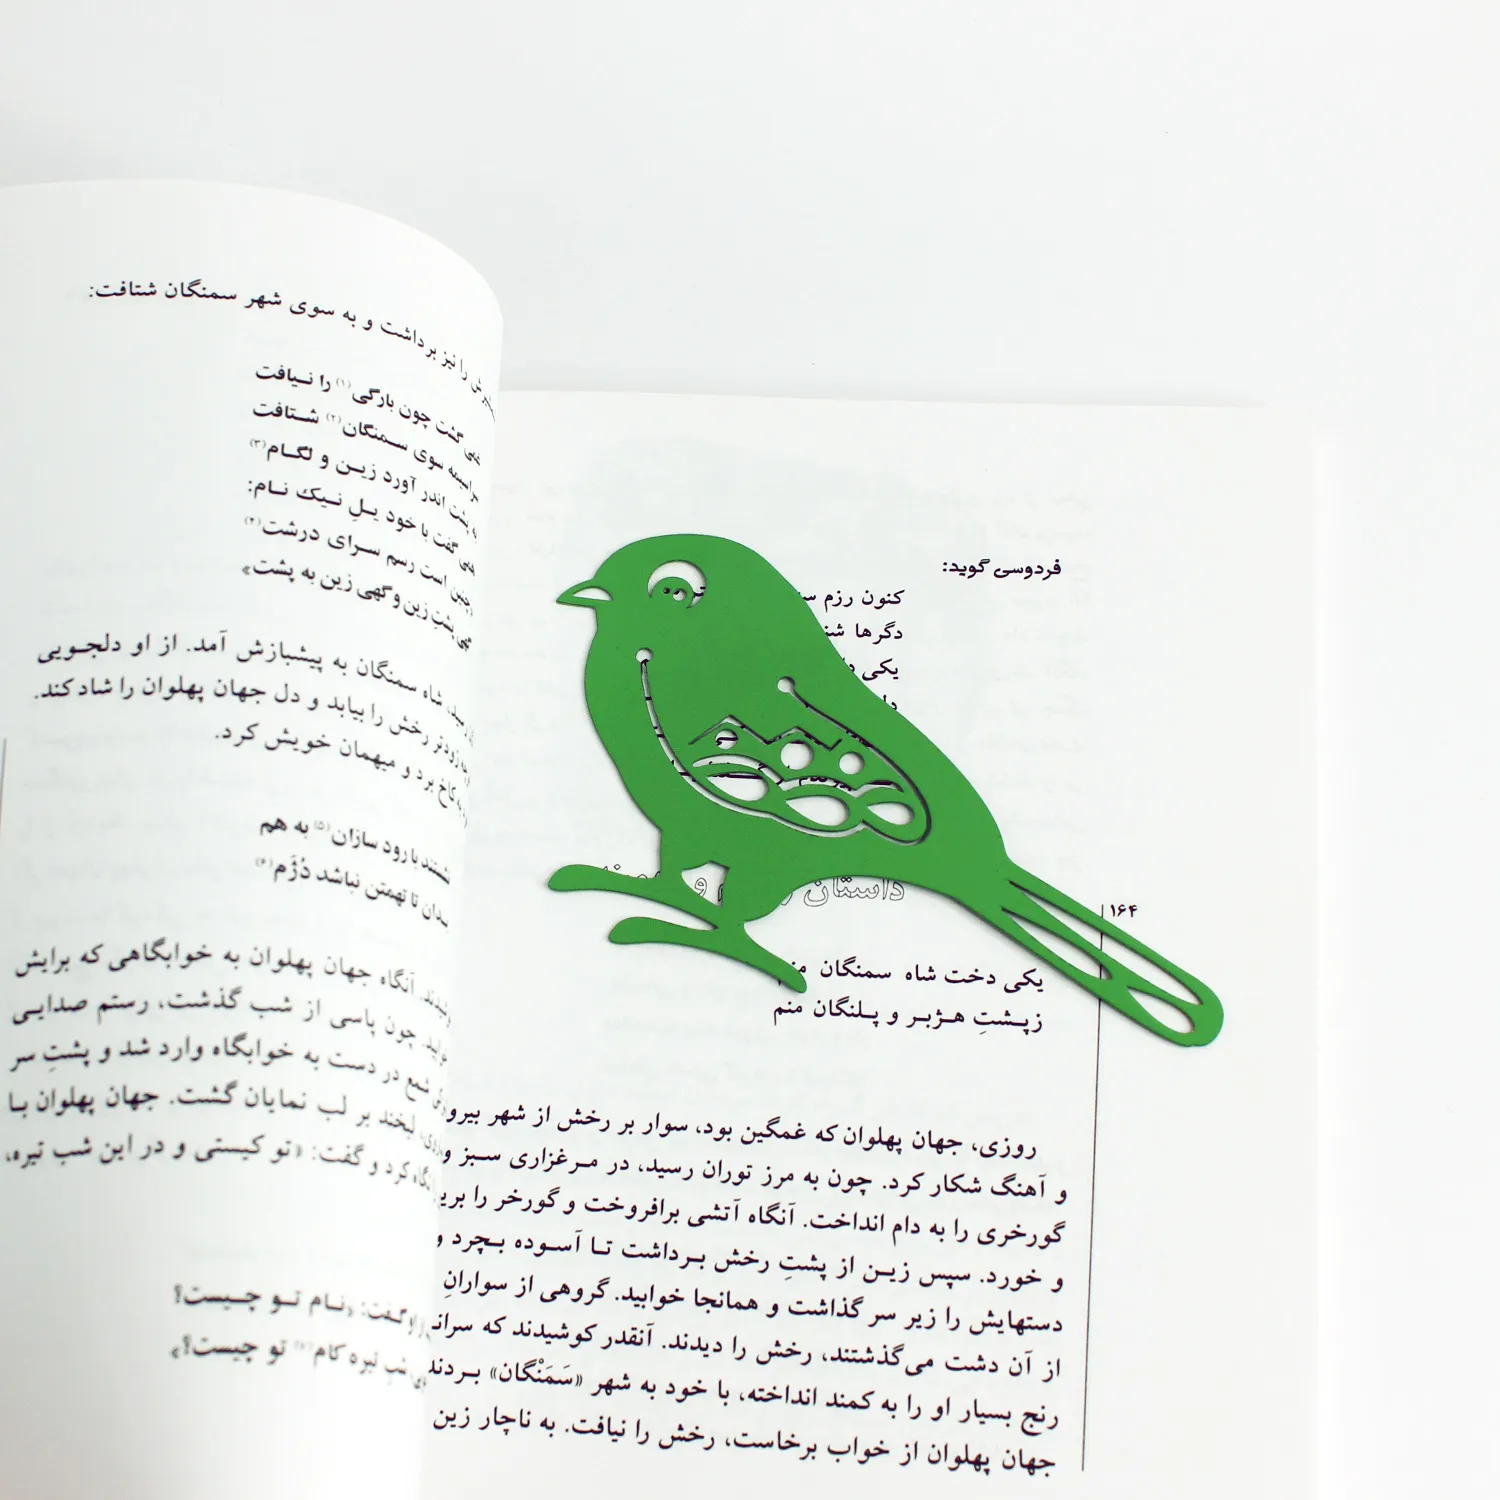 فردوسی گوید:
کنون رزم
دگرها
یکی
داستان
۱۶۴
یکی دخت شاه سمنگان منم
زپشتِ هژبر و پلنگان منم
روزی، جهان پهلوان که غمگین بود، سوار بر رخش از شهر
و آهنگ شکار کرد. چون به مرز توران رسید، در مرغزاری سبز و
گورخری را به دام انداخت. آنگاه آتشی برافروخت و گورخر را
و خورد. سپس زین از پشتِ رخش برداشت تا آسوده بچرد و
دستهایش را زیر سر گذاشت و همانجا خوابید. گروهی از سوارانِ
از آن دشت می‌گذشتند، رخش را دیدند. آنقدر کوشیدند که
رنج بسیار او را به کمند انداخته، با خود به شهر «سَمَنْگان» بردند
جهان پهلوان از خواب برخاست، رخش را نیافت. به ناچار زین
را نیز برداشت و به سوی شهر سمنگان شتافت:
گشت چون بارگی(۱) را نیافت
سراسیمه سوی سمنگان(۲) شتافت
پشت اندر آورد زین و لگام(۳)
همی گفت با خود یلِ نیک نام:
چنین است رسم سرای درشت(۴)
گهی پشتِ زین و گهی زین به پشت»
شاه سمنگان به پیشبازش آمد. از او دلجویی
زودتر رخش را بیابد و دل جهان پهلوان را شاد کند.
به کاخ برد و میهمان خویش کرد.
نشستند با رود سازان(۵) به هم
بدان تا تهمتن نباشد دُژَم(۶)
آنگاه جهان پهلوان به خوابگاهی که برایش
چون پاسی از شب گذشت، رستم صدایی
شمع در دست به خوابگاه وارد شد و پشتِ سر
لبخند بر لب نمایان گشت. جهان پهلوان با
نگاه کرد و گفت: «تو کیستی و در این شب تیره،
گفت: «نام تو چیست؟
شبِ تیره کام(۷) تو چیست؟»